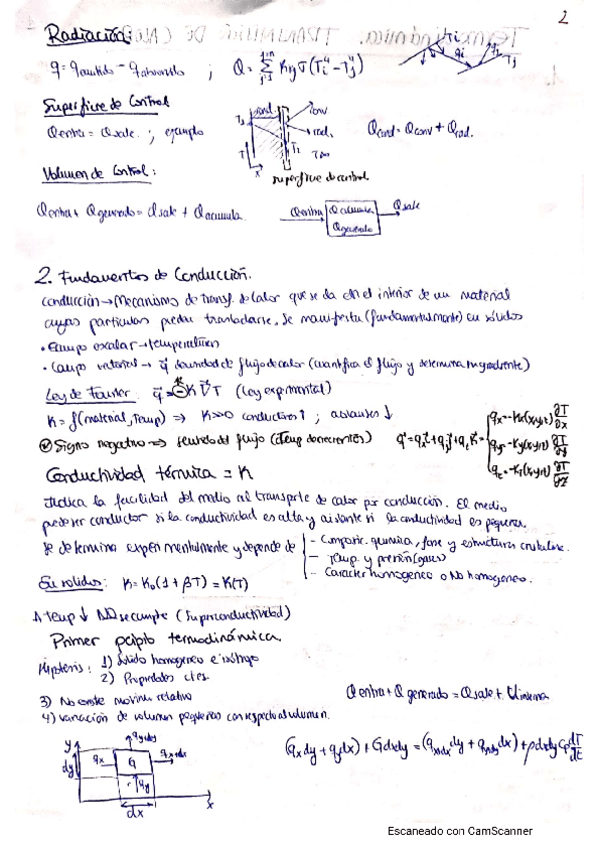 2
Radiación:
q = qemitido - qabsorbido ; Q = Σ Kij σ(Ti⁴ - Tj⁴)
Ti
qi
Tj
Superficie de Control
Qentra = Qsale. ; ejemplo
cond.
conv
rad.
T2
T∞
T
x
superficie de control
Qcond = Qconv + Qrad.
Volumen de Control:
Qentra + Qgenerado = Qsale + Qacumula.
Qentra
Qacumula
Qgenerado
Qsale
2. Fundamentos de Conducción.
Conducción → Mecanismo de transf. de calor que se da en el interior de un material
cuyas partículas pueden trasladarse, se manifiesta (fundamentalmente) en sólidos
• Campo escalar → temperaturas
• Campo vectorial → q⃗ densidad de flujo de calor (cuantifica el flujo y determina su gradiente)
Ley de Fourier q⃗ = -K ∇T (Ley experimental)
K = f(material, Temp) ⇒ K>>0 conductores ↑ ; aislantes ↓
Signo negativo ⇒ sentido del flujo (Temp decrecientes)
q⃗ = qx i⃗ + qy j⃗ + qz K⃗ =
qx = -Kx(x,y,z) ∂T/∂x
qy = -Ky(x,y,z) ∂T/∂y
qz = -Kz(x,y,z) ∂T/∂z
Conductividad térmica = K
Indica la facilidad del medio al transporte de calor por conducción. El medio
puede ser conductor si la conductividad es alta y aislante si la conductividad es pequeña.
Se determina experimentalmente y depende de
- Composic. química, fase y estructura cristalina.
- Temp y presión (gases)
- Carácter homogéneo o No homogéneo.
En sólidos: K = K₀(1 + βT) = K(T)
A temp ↓ NO se cumple (Superconductividad)
Primer pcipio termodinámica.
Hipótesis: 1) Sólido homogéneo e isótropo
2) Propiedades ctes.
3) No existe movim. relativo
4) variación de volumen pequeñas con respecto al volumen.
Qentra + Qgenerado = Qsale + Uinterna
(qx dy + qy dx) + Gdxdy = (qx+dx dy + qy+dy dx) + ρdxdy Cp dT/dt
y
dy
qx
G
qy+dy
qx+dx
qy
dx
x
Escaneado con CamScanner